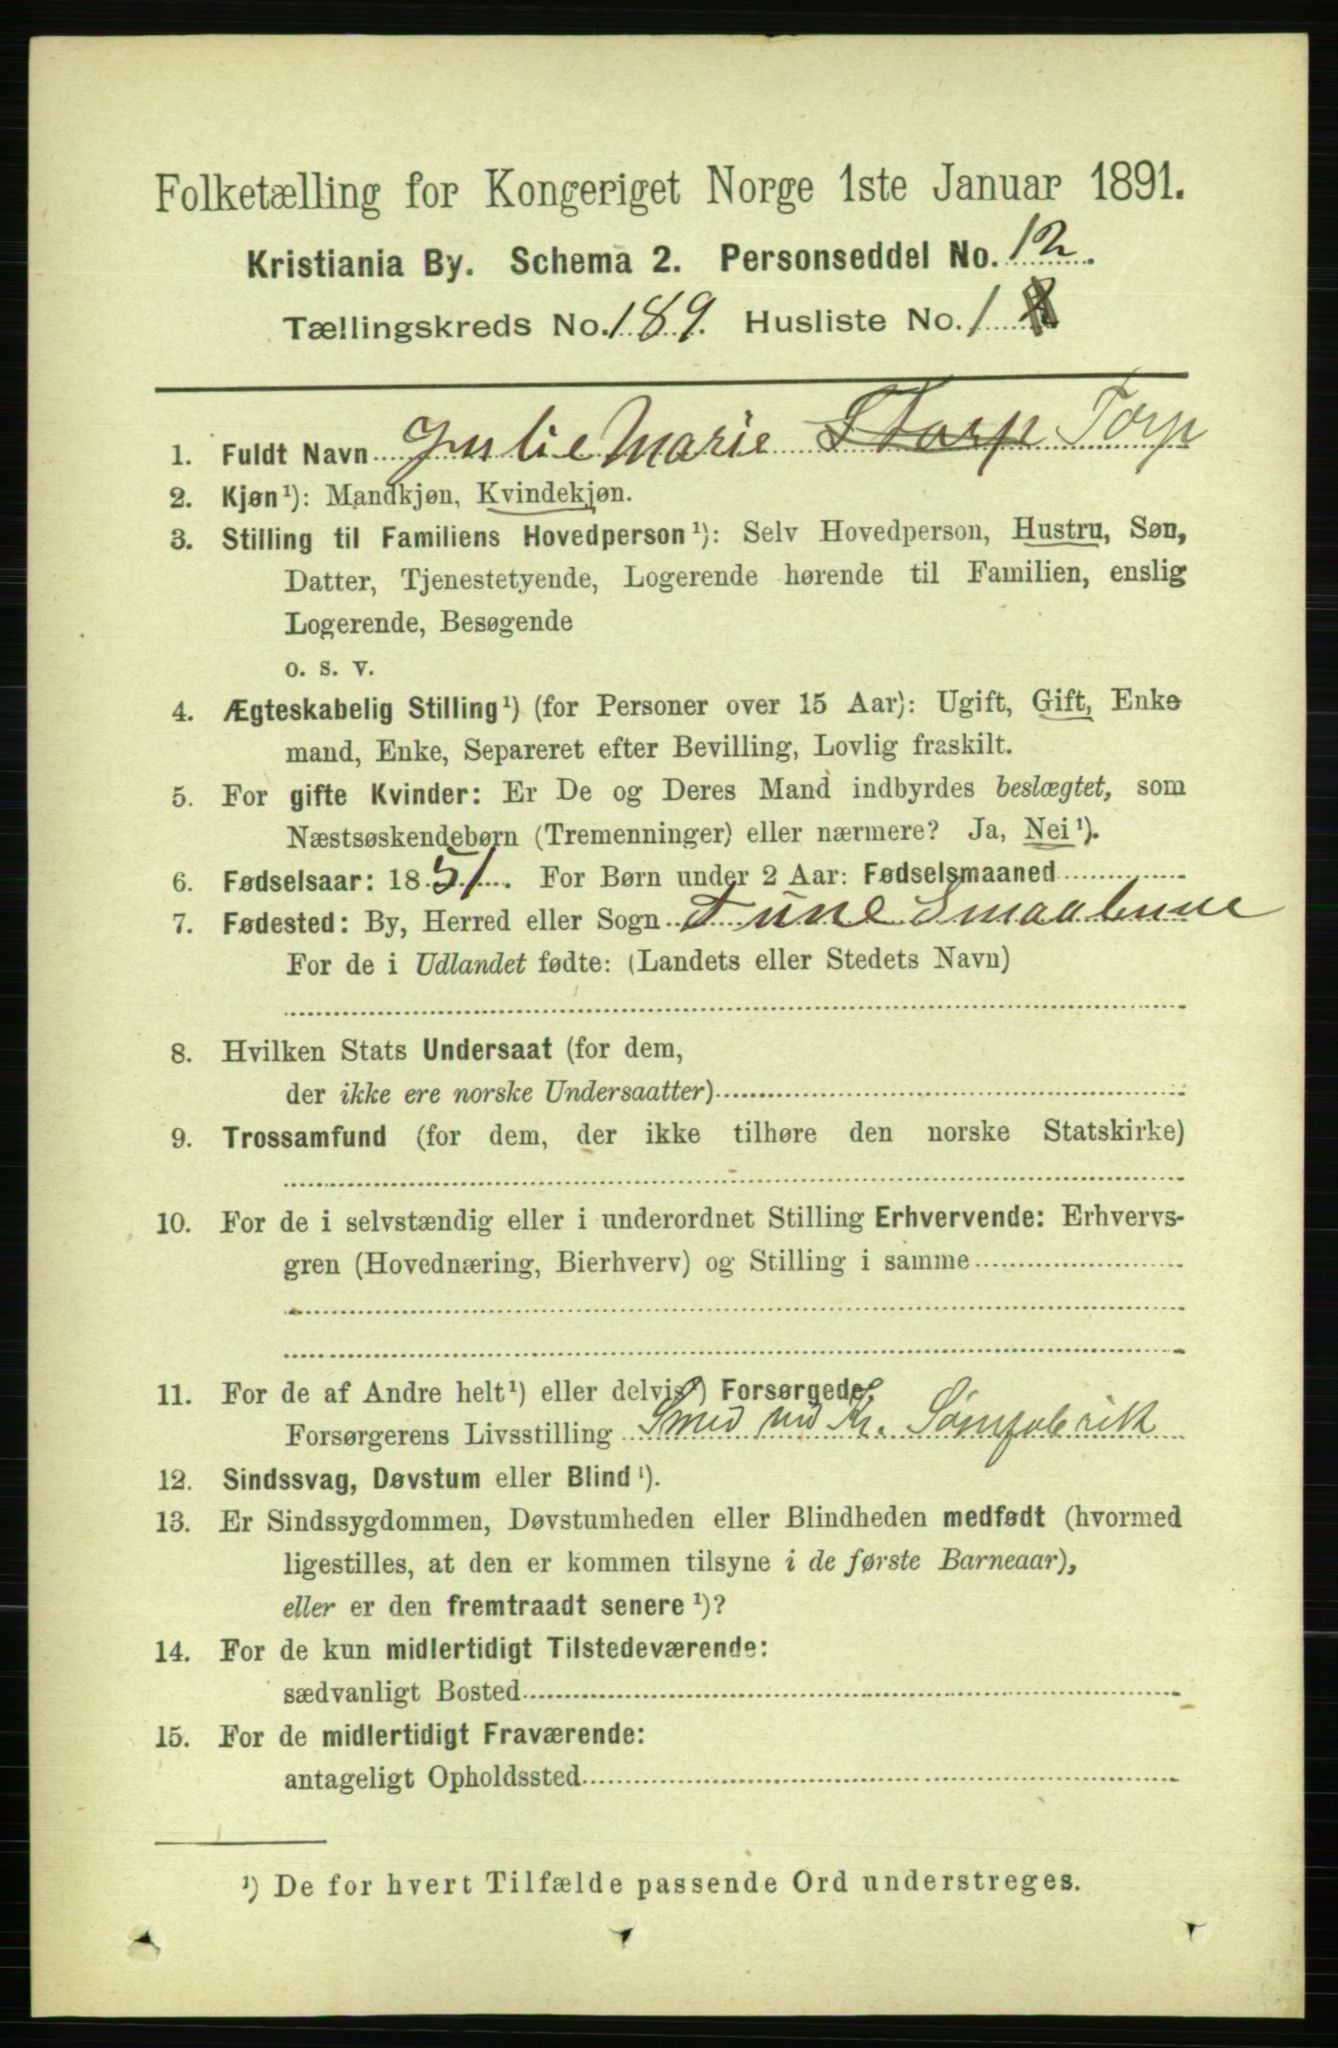 Folketælling for Kongeriget Norge 1ste Januar 1891.
Kristiania By. Schema 2. Personseddel No. 12.
Tællingskreds No. 189. Husliste No. 1
1. Fuldt Navn Julie Marie Storp Torp
2. Kjøn¹): Mandkjøn, Kvindekjøn.
3. Stilling til Familiens Hovedperson¹): Selv Hovedperson, Hustru, Søn,
Datter, Tjenestetyende, Logerende hørende til Familien, enslig
Logerende, Besøgende
o. s. v.
4. Ægteskabelig Stilling¹) (for Personer over 15 Aar): Ugift, Gift, Enke
mand, Enke, Separeret efter Bevilling, Lovlig fraskilt.
5. For gifte Kvinder: Er De og Deres Mand indbyrdes beslægtet, som
Næstsøskendebørn (Tremenninger) eller nærmere? Ja, Nei¹).
6. Fødselsaar: 1851. For Børn under 2 Aar: Fødselsmaaned
7. Fødested: By, Herred eller Sogn Tune Smaalenene
For de i Udlandet fødte: (Landets eller Stedets Navn)
8. Hvilken Stats Undersaat (for dem,
der ikke ere norske Undersaatter)
9. Trossamfund (for dem, der ikke tilhøre den norske Statskirke)
10. For de i selvstændig eller i underordnet Stilling Erhvervende: Erhvervs-
gren (Hovednæring, Bierhverv) og Stilling i samme
11. For de af Andre helt¹) eller delvis¹) Forsørgede,
Forsørgerens Livsstilling Smed ved Kr. Sømfabrik
12. Sindssvag, Døvstum eller Blind¹).
13. Er Sindssygdommen, Døvstumheden eller Blindheden medfødt (hvormed
ligestilles, at den er kommen tilsyne i de første Barneaar),
eller er den fremtraadt senere¹)?
14. For de kun midlertidigt Tilstedeværende:
sædvanligt Bosted
15. For de midlertidigt Fraværende:
antageligt Opholdssted
¹) De for hvert Tilfælde passende Ord understreges.